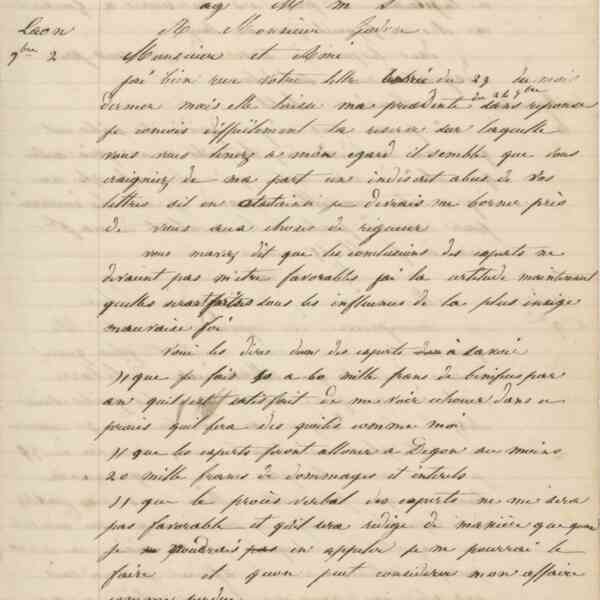 Laon
9bre 2
A Monsieur
Monsieur et Ami
j'ai bien recu votre lettre du 29 du mois
dernier mais elle laisse ma precedente du 26 9bre sans reponse
je concois difficilement la reserve sur laquelle
vous vous tenez a mon egard il semble que vous
craigniez de ma part un indiscret abus de vos
lettres sil en etait ainsi je devrais me borner près
de vous aux choses de rigueur
vous maviez dit que les conclusions des experts ne
devaient pas metre favorables jai la certitude maintenant
quelles seront faites sous les influences de la plus insigne
mauvaise foi
Voici les dires dun des experts à savoir
1/ que je fais 50 a 60 mille frans de benifices par
an quil est satisfait de me voir echouer dans ce
procès quil fera des quilles comme moi
1/ que les experts feront allouer a Degon au moins
20 mille frans de dommages et interets
1/ que le procès verbal des experts ne me sera
pas favorable et quil sera redige de manière que quand
je voudrais en appeler je ne pourrai le
faire et quon peut considerer mon affaire
comme perdue